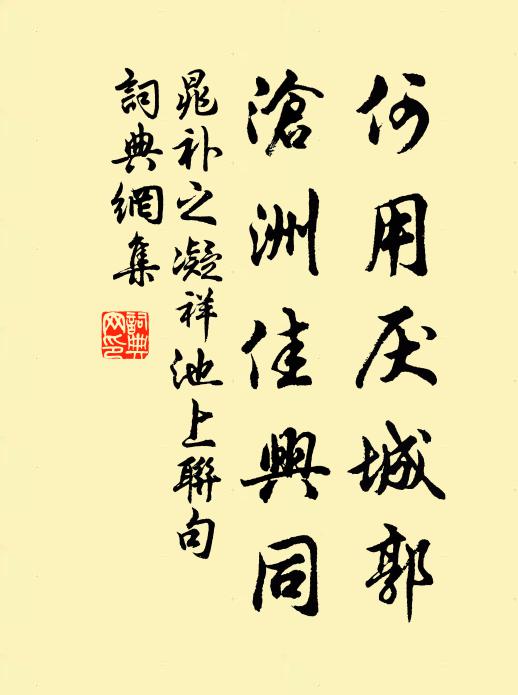 何用厌城郭
滄洲佳興同
晁补之凝祥池上聯句
詞典網集
詞典网印